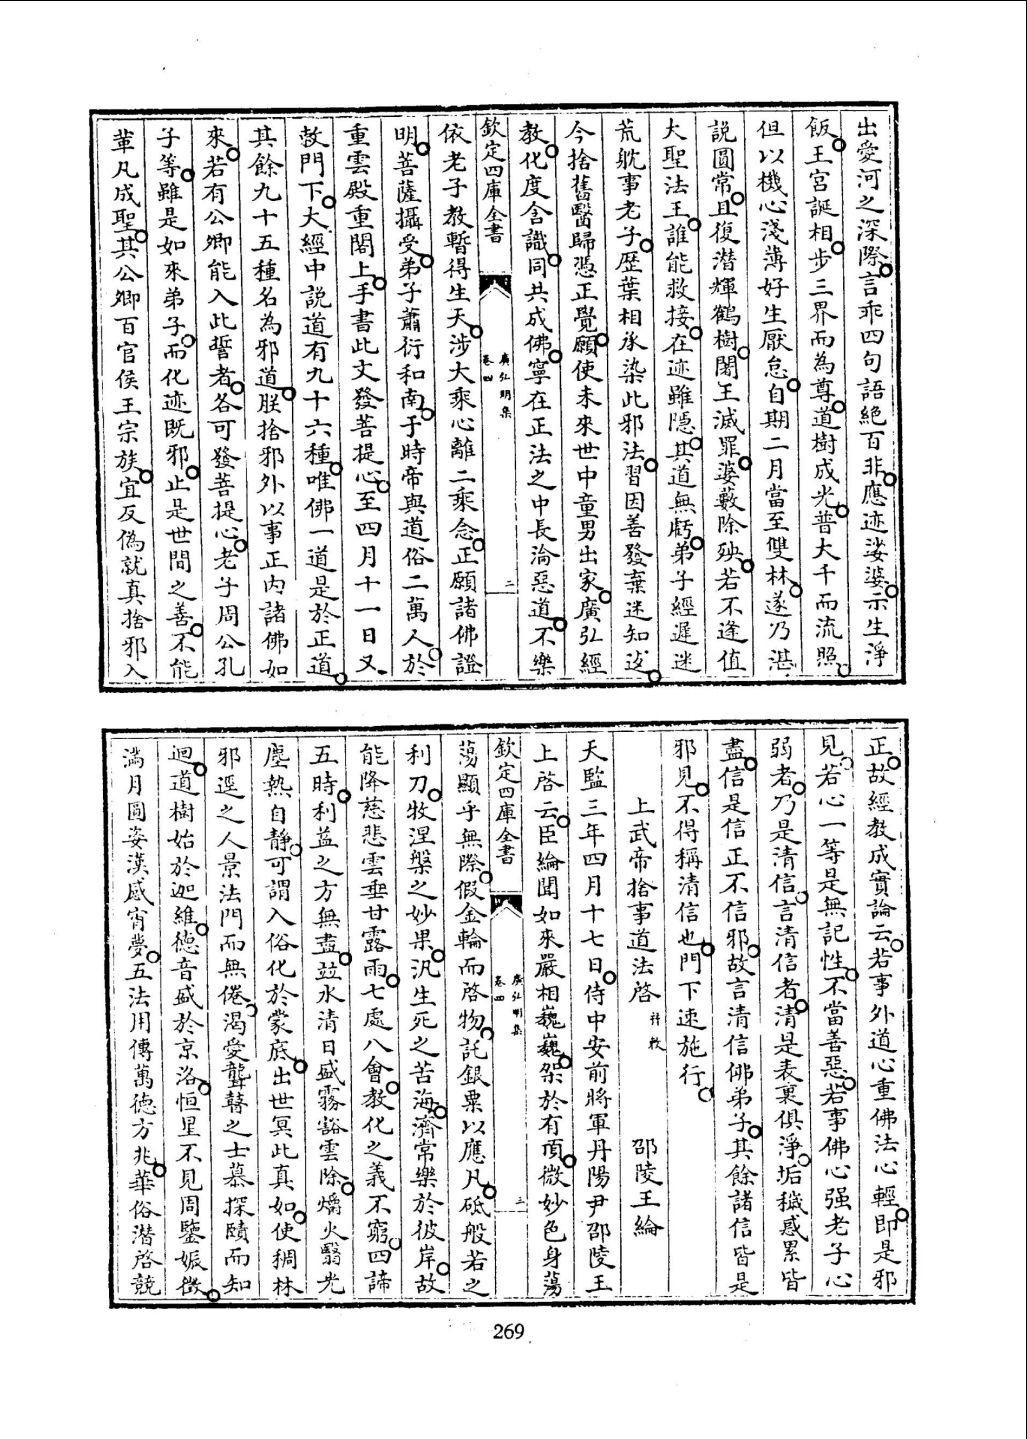 出愛河之深際言乖四句語絶百非應迹娑婆示生淨
飯王宮誕相步三界而為尊道樹成光普大千而流照
但以機心淺薄好生厭怠自期二月當至雙林遂乃湛
説圓常且復潜輝鶴樹闍王滅罪婆藪除殃若不逢值
大聖法王誰能救接在迹雖隱其道無虧弟子經遲迷
荒躭事老子歴葉相承染此邪法習因善發棄迷知返
今捨舊醫歸憑正覺願使未來世中童男出家廣弘經
教化度含識同共成佛寧在正法之中長淪惡道不樂
欽定四庫全書
廣弘明集
卷四
二
依老子教暫得生天涉大乘心離二乘念正願諸佛證
明菩薩攝受弟子蕭衍和南于時帝與道俗二萬人於
重雲殿重閣上手書此文發菩提心至四月十一日又
敕門下大經中説道有九十六種唯佛一道是於正道
其餘九十五種名為邪道朕捨邪外以事正内諸佛如
來若有公卿能入此誓者各可發菩提心老子周公孔
子等雖是如來弟子而化迹既邪止是世間之善不能
革凡成聖其公卿百官侯王宗族宜反偽就真捨邪入
正故經教成實論云若事外道心重佛法心輕即是邪
見若心一等是無記性不當善惡若事佛心强老子心
弱者乃是清信言清信者清是表裏俱淨垢穢惑累皆
盡信是信正不信邪故言清信佛弟子其餘諸信皆是
邪見不得稱清信也門下速施行
上武帝捨事道法啓 并敕 邵陵王綸
天監三年四月十七日侍中安前將軍丹陽尹邵陵王
上啓云臣綸聞如來嚴相巍巍架於有頂微妙色身蕩
欽定四庫全書
廣弘明集
卷四
三
蕩顯乎無際假金輪而啓物託銀粟以應凡砥般若之
利刀收涅槃之妙果汎生死之苦海濟常樂於彼岸故
能降慈悲雲垂甘露雨七處八會教化之義不窮四諦
五時利益之方無盡竝水清日盛霧豁雲除爝火翳光
塵熱自靜可謂入俗化於蒙底出世冥此真如使稠林
邪逕之人景法門而無倦渴愛聾瞽之士慕探賾而知
迴道樹始於迦維德音盛於京洛恒星不見周鑒娠徵
滿月圖姿漢感宵夢五法用傳萬德方兆華俗潜啓競
269